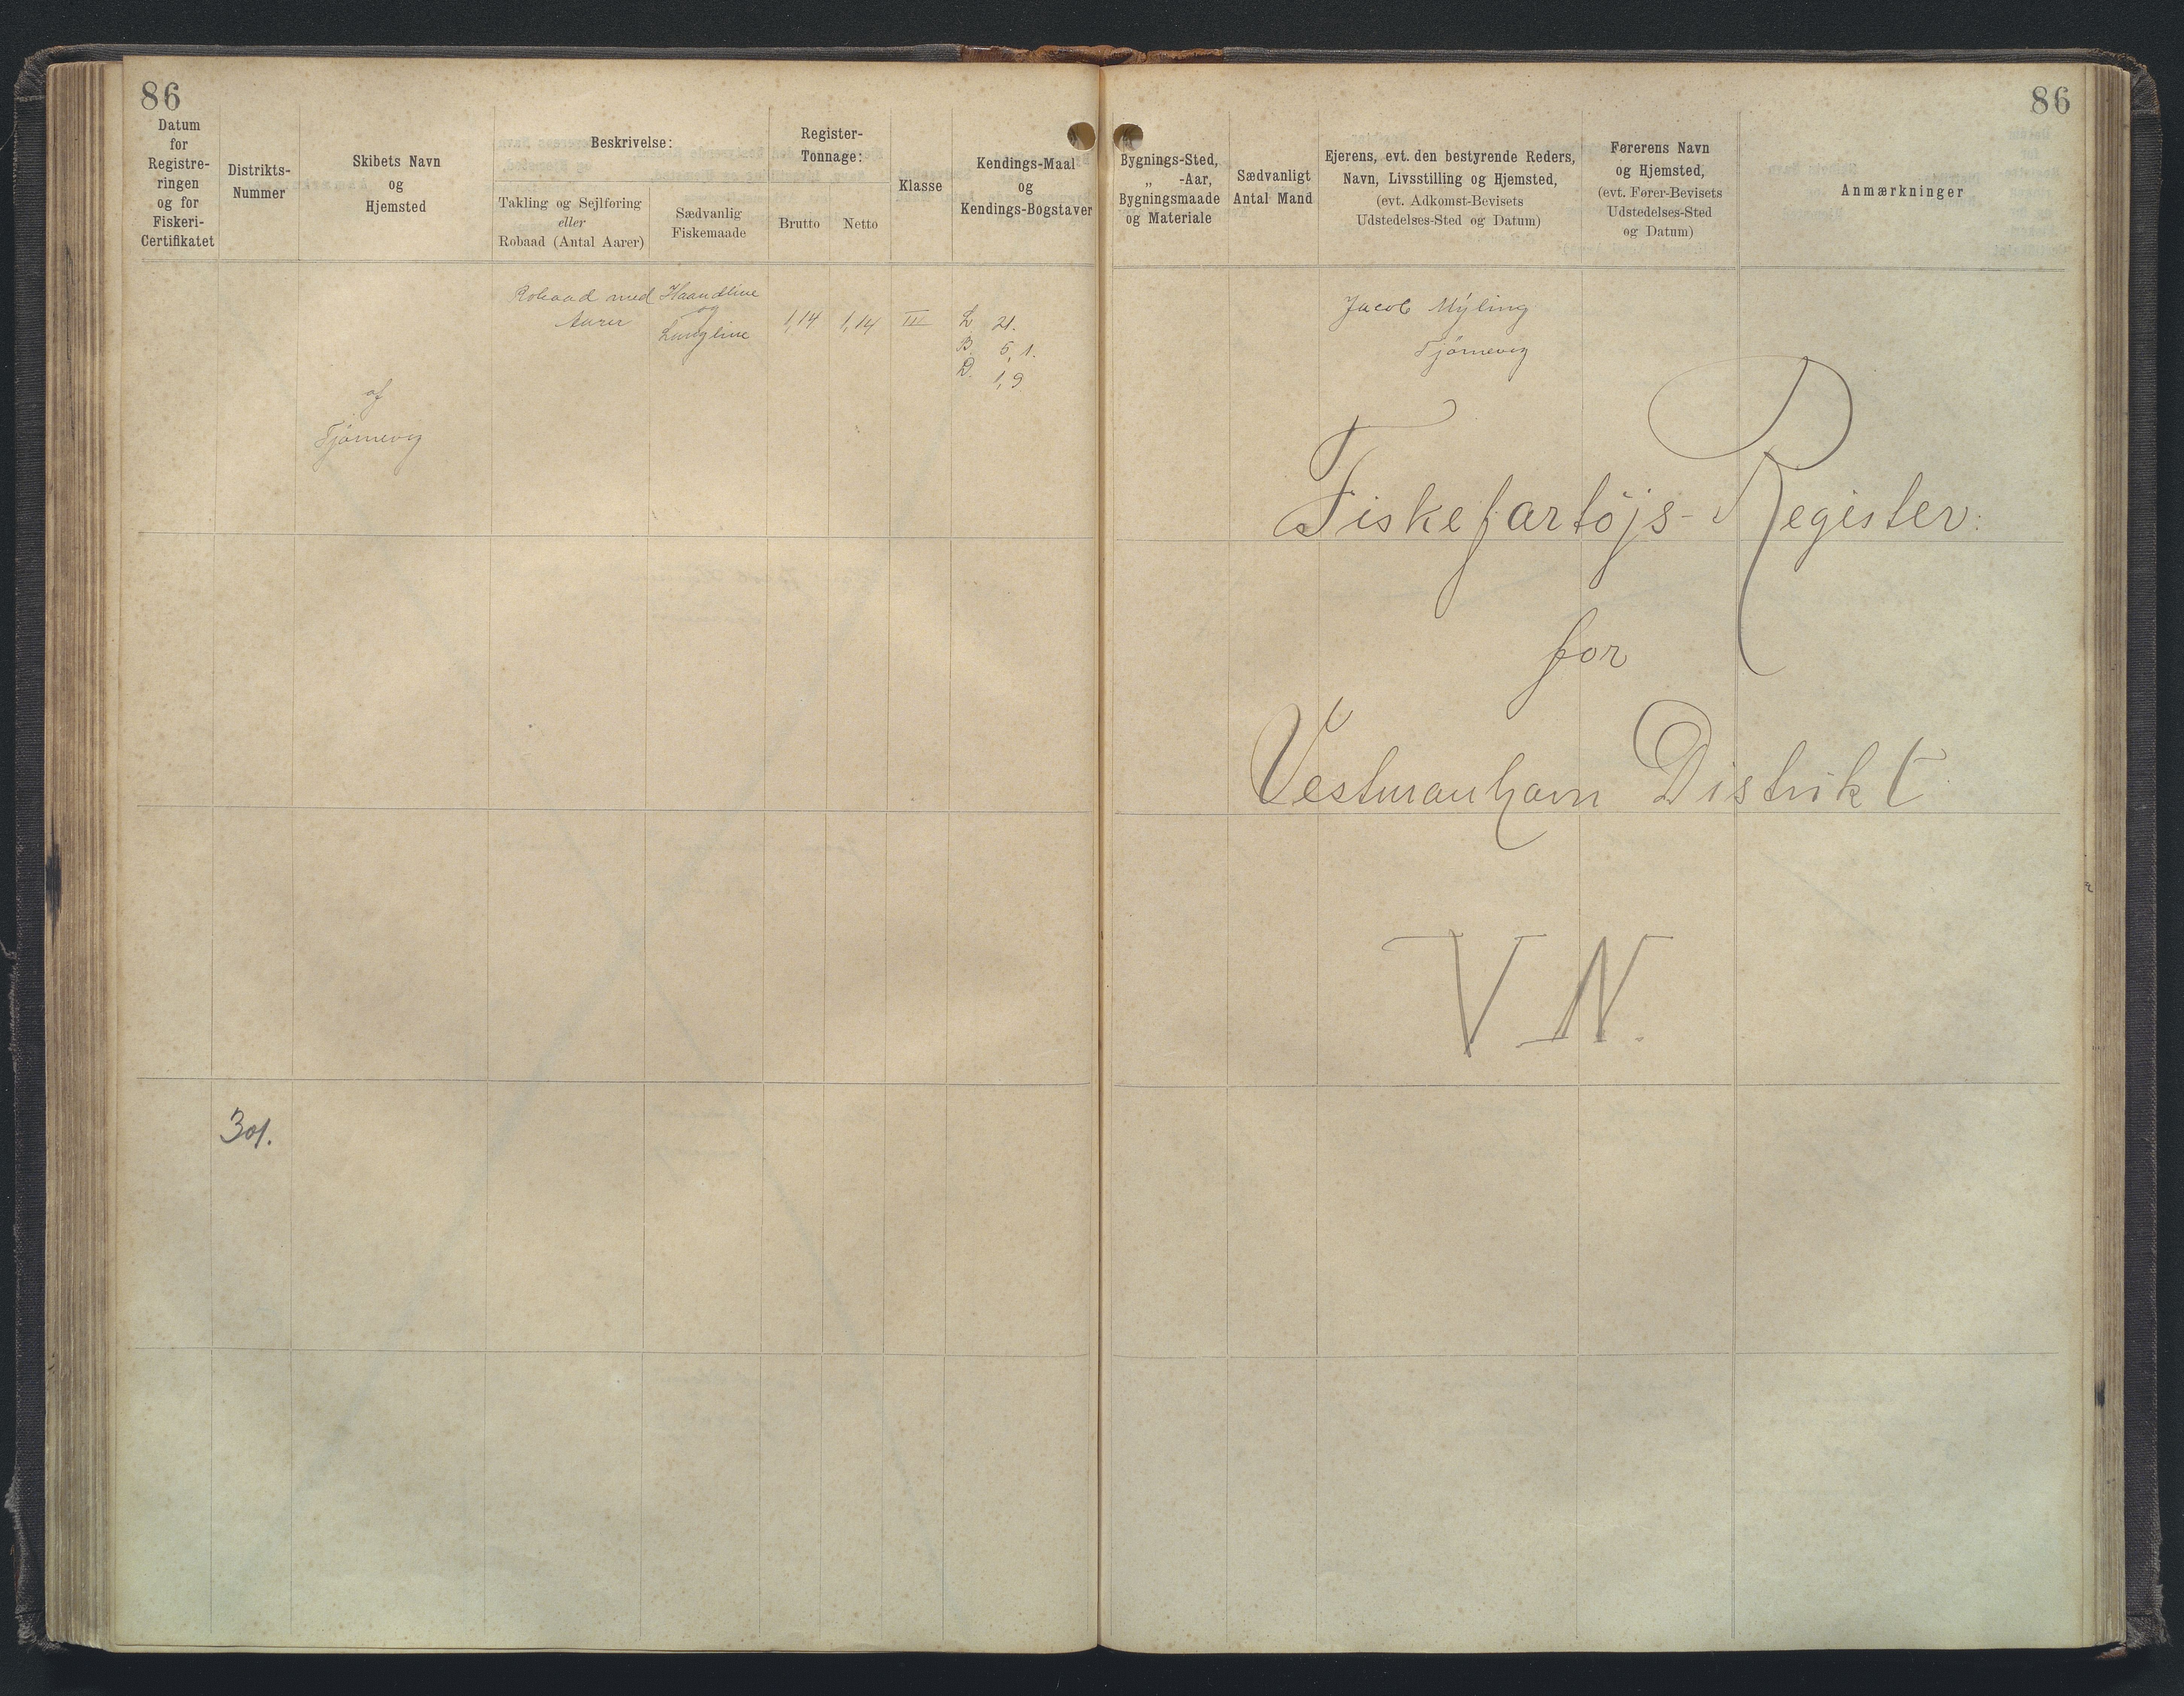 86
Datum
for
Registre-
ringen
og for
Fiskeri-
Certifikatet
Distrikts-
Nummer
Skibets Navn
og
Hjemsted
Beskrivelse:
Takling og Sejlføring
eller
Robaad (Antal Aarer)
Sædvanlig
Fiskemaade
Register-
Tonnage:
Brutto
Netto
Klasse
Kendings-Maal
og
Kendings-Bogstaver
af
Tjörnevig
Robaad med
Aarer
Haandline
og
Langline
1,14
1,14
III
L. 21.
B. 5,1.
D. 1,9
301.
86
Bygnings-Sted,
„ -Aar,
Bygningsmaade
og Materiale
Sædvanligt
Antal Mand
Ejerens, evt. den bestyrende Reders,
Navn, Livsstilling og Hjemsted,
(evt. Adkomst-Bevisets
Udstedelses-Sted og Datum)
Førerens Navn
og Hjemsted,
(evt. Fører-Bevisets
Udstedelses-Sted
og Datum)
Anmærkninger
Jacob Mýling
Tjörnevig
Fiskefartöjs-Register:
for
Vestmanhavn Distrikt
V N.